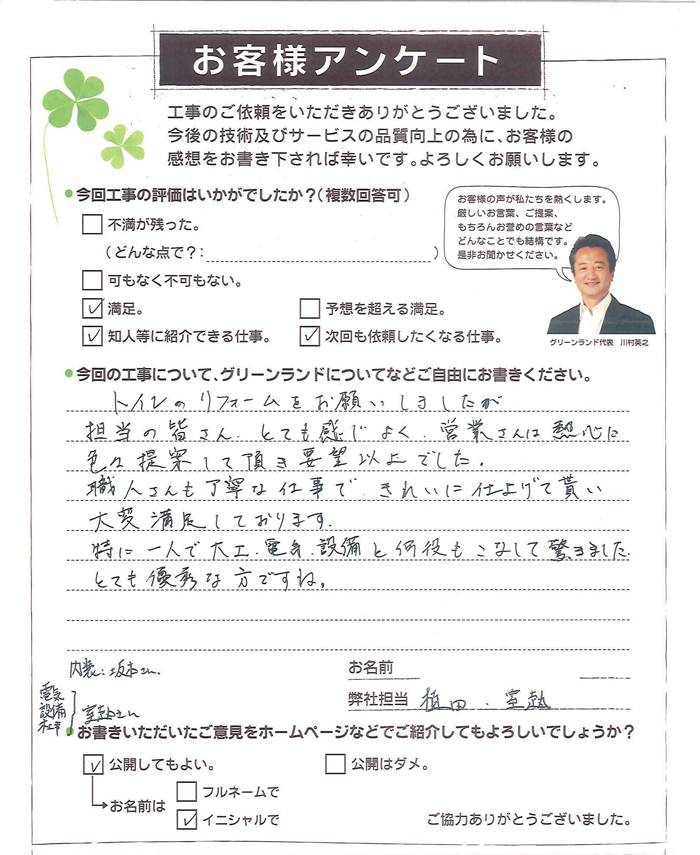 お客様アンケート
工事のご依頼をいただきありがとうございました。
今後の技術及びサービスの品質向上の為に、お客様の
感想をお書き下されば幸いです。よろしくお願いします。
今回工事の評価はいかがでしたか?(複数回答可)
不満が残った。
(どんな点で?: )
可もなく不可もない。
満足。
予想を超える満足。
知人等に紹介できる仕事。
次回も依頼したくなる仕事。
お客様の声が私たちを熱くします。
厳しいお言葉、ご提案、
もちろんお誉めの言葉など
どんなことでも結構です。
是非お聞かせください。
グリーンランド代表 川村英之
今回の工事について、グリーンランドについてなどご自由にお書きください。
トイレのリフォームをお願いしましたが
担当の皆さん、とても感じよく、営業さんは熱心に
色々提案して頂き要望以上でした。
職人さんも丁寧な仕事で、きれいに仕上げて貰い
大変満足しております。
特に一人で大工、電気、設備と何役もこなして驚きました
とても優秀な方ですね。
内装:坂本さん
電気
設備
さん
お名前
弊社担当 植田、室
お書きいただいたご意見をホームページなどでご紹介してもよろしいでしょうか?
公開してもよい。
公開はダメ。
お名前は
フルネームで
イニシャルで
ご協力ありがとうございました。